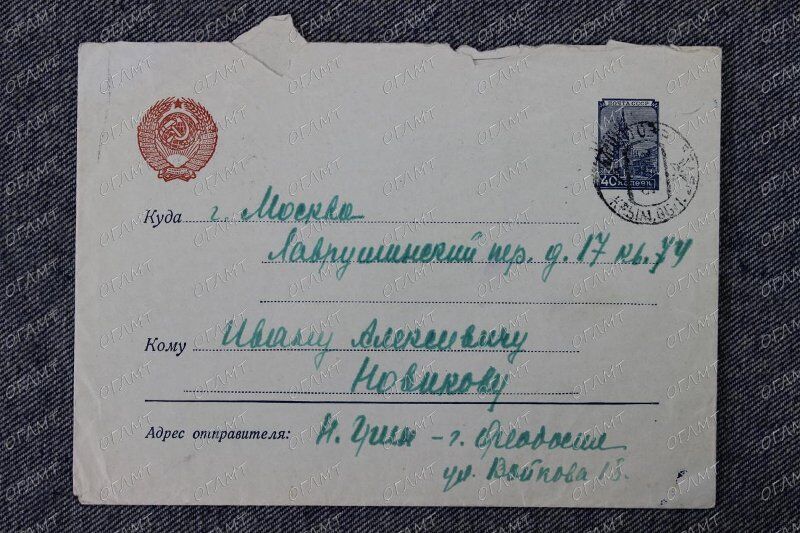 ПОЧТА СССР
40 КОПЕЕК
КРЫМ. ОБЛ.
Куда г. Москва
Лаврушинский пер. д. 17 кв. 74
Кому Ивану Алексеевичу
Новикову
Адрес отправителя: Н. Грин – г. Феодосия
ул. Войкова 13.
ОГЛМТ